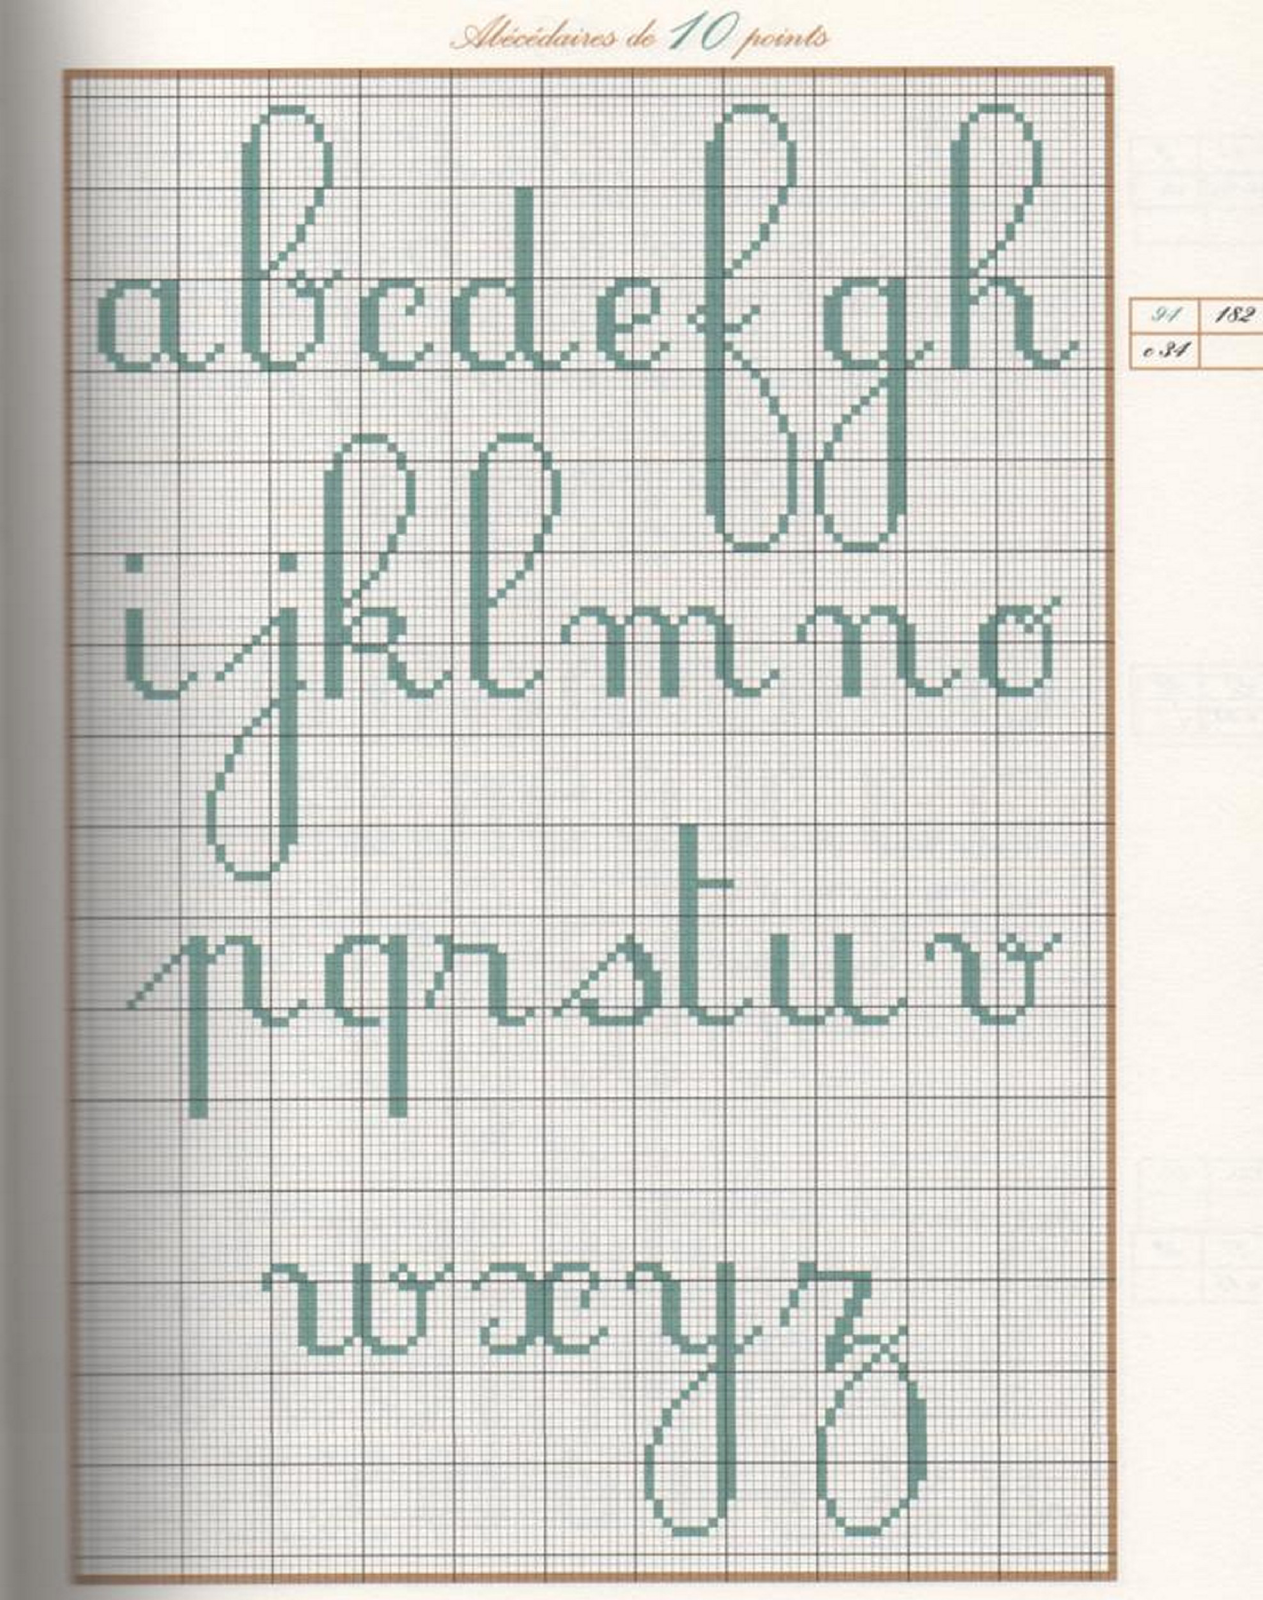 Abécédaires de 10 points
a b c d e f g h
i j k l m n o
p q r s t u v
w x y z
91 182
c 34